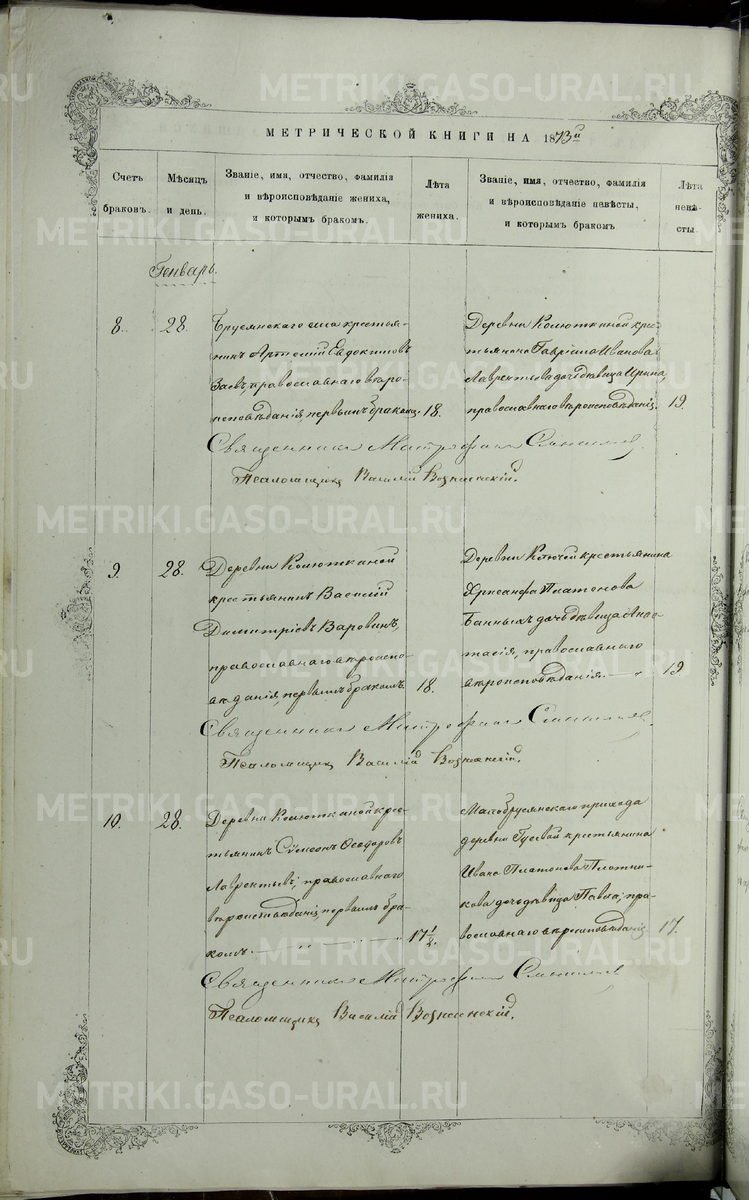 МЕТРИЧЕСКОЙ КНИГИ НА 1873й
Счетъ браковъ.
Мѣсяцъ и день.
Званіе, имя, отчество, фамилія
и вѣроисповѣданіе жениха,
и которымъ бракомъ.
Лѣта жениха.
Званіе, имя, отчество, фамилія
и вѣроисповѣданіе невѣсты,
и которымъ бракомъ
Лѣта невѣсты.
Генварь.
8.
28.
Бруснянскаго села крестья-
нинъ Артемій Евдокимовъ
православнаго вѣро-
исповѣданія, первымъ бракомъ.
18.
Деревни Колюткиной крес-
тьянина Гавріила Иванова
Лаврентьева дочь дѣвица Ирина,
православнаго вѣроисповѣданія.
19.
Священникъ Митрофанъ
Псаломщикъ Василій Вознесенскій.
9.
28.
Деревни Колюткиной
крестьянинъ Василій
Димитріевъ Варовинъ,
православнаго вѣроиспо-
вѣданія, первымъ бракомъ.
18.
Деревни Ключей крестьянина
Хрисанфа Платонова
Банныхъ дочь дѣвица Анас-
тасія, православнаго
вѣроисповѣданія.
19.
Священникъ Митрофанъ
Псаломщикъ Василій Вознесенскій.
10.
28.
Деревни Колюткиной крес-
тьянинъ Сѵмеонъ Ѳеодоровъ
Лаврентьевъ, православнаго
вѣроисповѣданія, первымъ бра-
комъ.
17 1/2.
Малобрусянскаго прихода
деревни Гусевой крестьянина
Ивана Платонова Плотни-
кова дочь дѣвица Павла, пра-
вославнаго вѣроисповѣданія
17.
Священникъ Митрофанъ
Псаломщикъ Василій Вознесенскій.
METRIKI.GASO-URAL.RU
METRIKI.GASO-URAL.RU
METRIKI.GASO-URAL.RU
METRIKI.GASO-URAL.RU
METRIKI.GASO-URAL.RU
METRIKI.GASO-URAL.RU
METRIKI.GASO-URAL.RU
METRIKI.GASO-URAL.RU